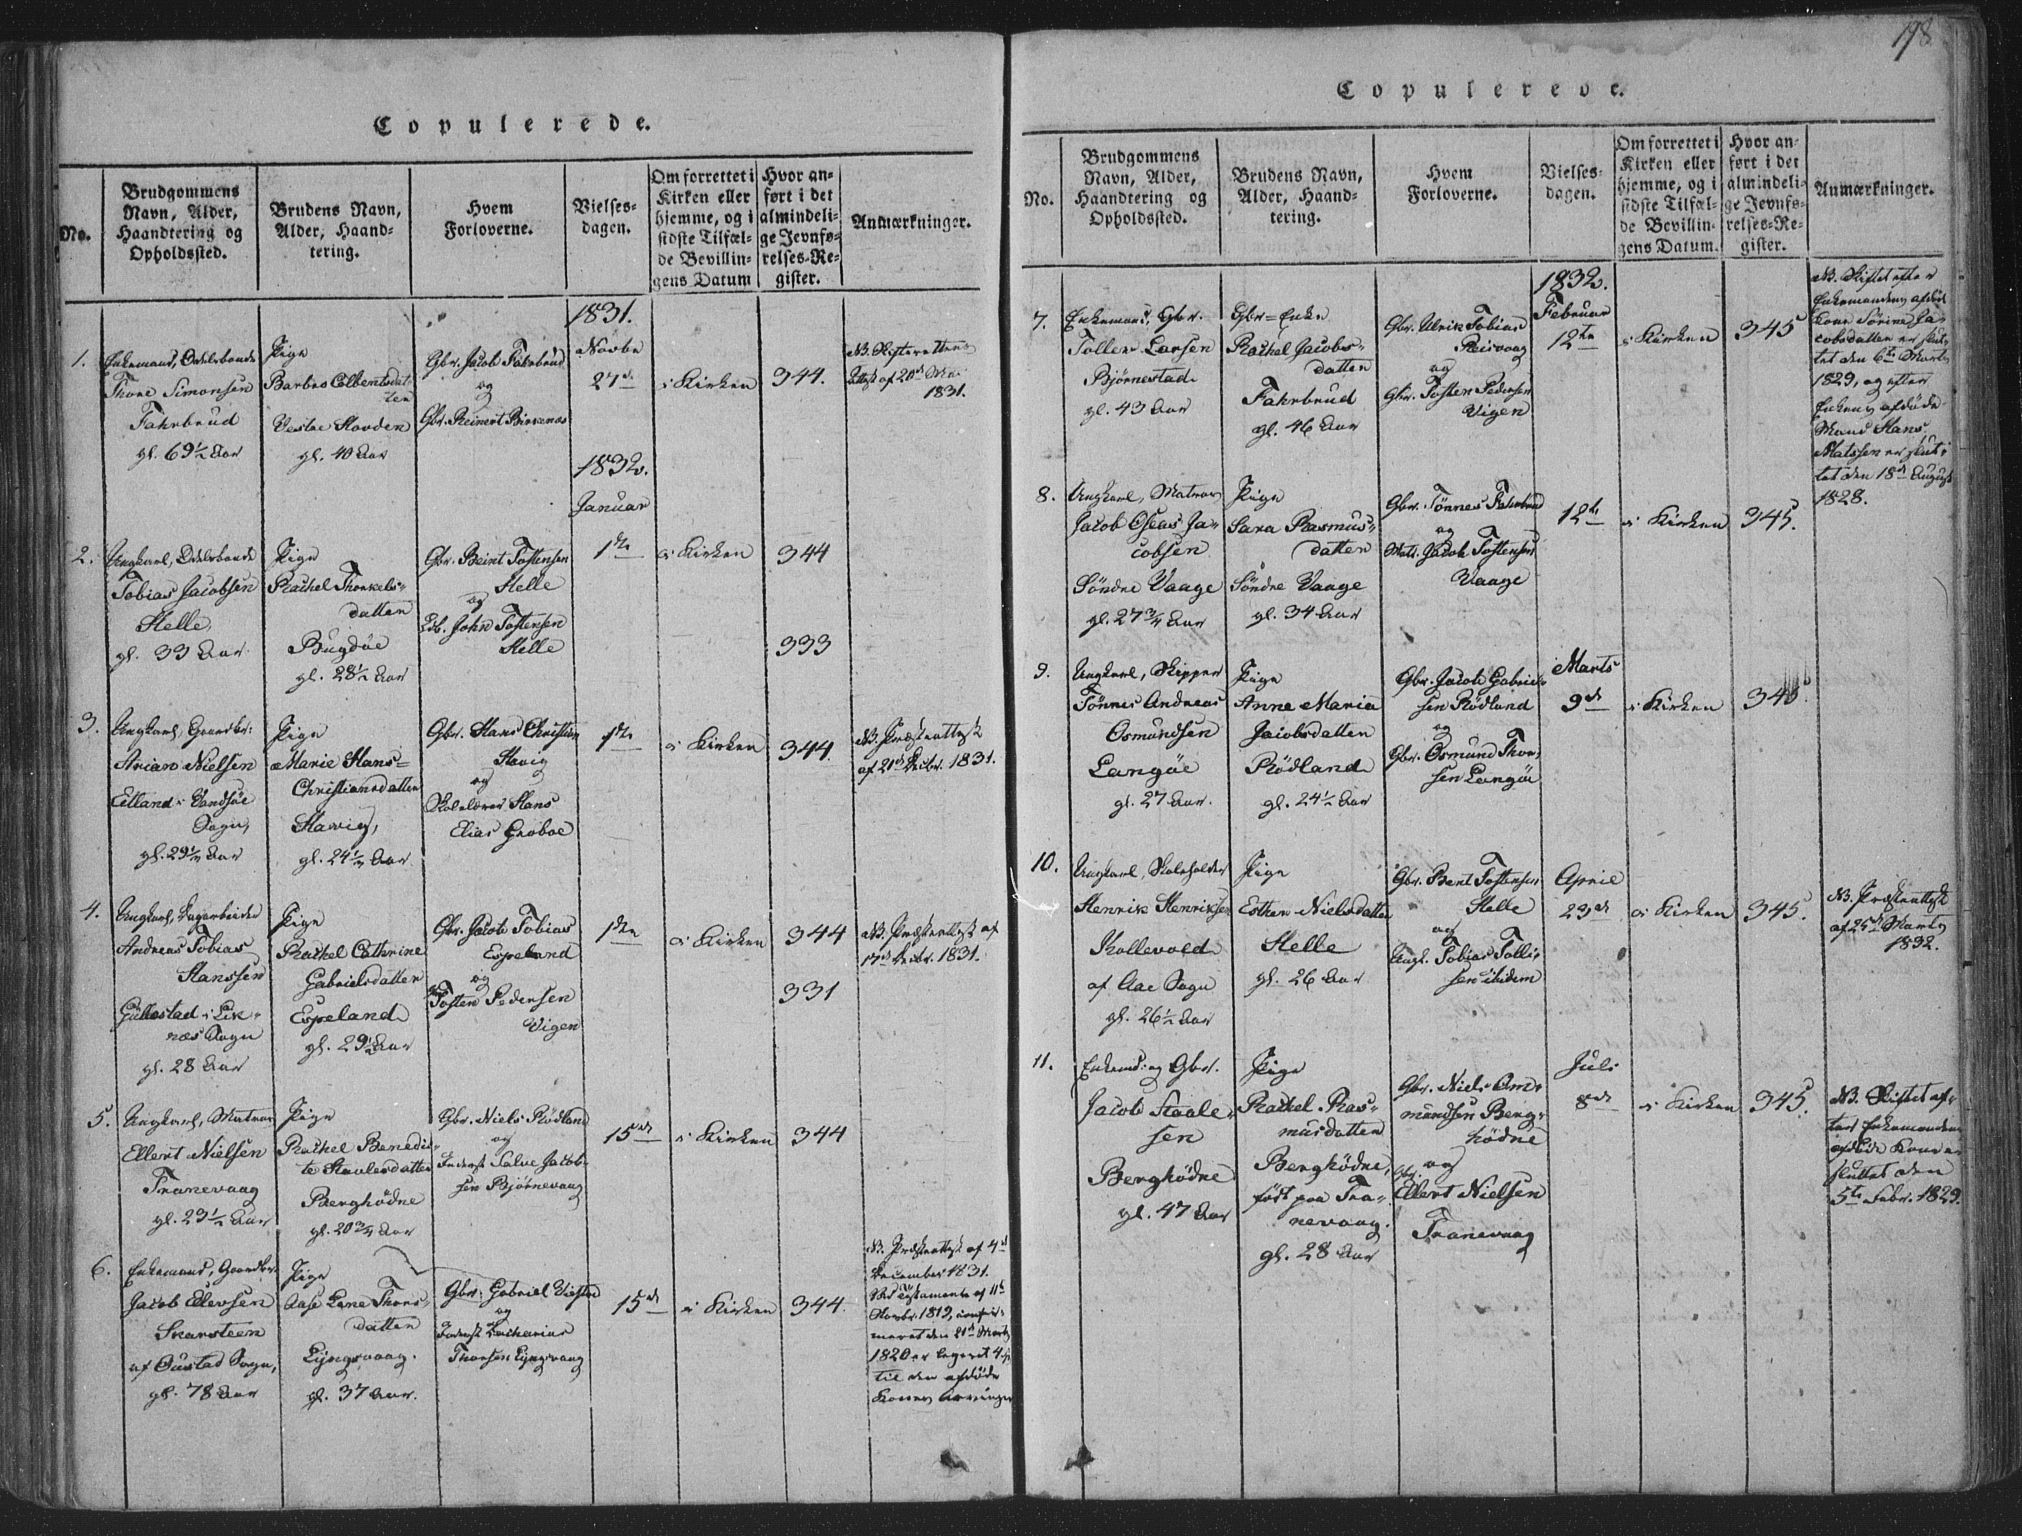 Copulerede.
No.
Brudgommens
Navn, Alder,
Haandtering og
Opholdssted.
Brudens Navn,
Alder, Haand-
tering.
Hvem
Forloverne.
Vielses-
dagen.
Om forrettet i
Kirken eller
hjemme, og i
sidste Tilfæl-
de Bevillin-
gens Datum
Hvor an-
ført i det
almindeli-
ge Jevnfø-
relses-Re-
gister.
Anmærkninger.
1.
Enkemand, Odelsbonde
Thore Simonsen
Fahrbrud
gl. 69½ Aar
Pige
Barbro Colbentsdat-
ter
Vestre Hovden
gl. 40 Aar
Gbr. Jacob Fahrbrud
og
Gbr. Reinert Birkenæs
1831.
Novbr
27de
i Kirken
344.
NB. Skifterettens
Attest af 20de Mai
1831.
2.
Ungkarl, Odelsbonde
Tobias Jacobsen
Helle
gl. 33 Aar
Pige
Rachel Thorkels-
datter
Bugdøe
gl. 28½ Aar
Gbr. Beint Tostensen
Helle
og
Edb. John Tostensen
Helle
1832.
Januar
1ste
i Kirken
344
333
3.
Ungkarl, Gaardbr:
Arian Nielsen
Eitland i Vandsøe
Sogn,
gl. 29½ Aar
Pige
Marie Hans-
Christiansdatter
Havig,
gl. 24½ Aar
Gbr. Hans Christian
Havig
og
Skolelærer Hans
Elias Groboe
1ste
i Kirken
344.
NB. Præsteattest
af 21de Decbr. 1831.
4.
Ungkarl,
Andreas Tobias
Hanssen
Gullestad i Lik-
næs Sogn
gl. 28 Aar
Pige
Rachel Cathrine
Gabrielsdatter
Espeland
gl. 29½ Aar
Gbr. Jacob Tobias
Espeland
og
Tosten Pedersen
Vigen
1ste
i Kirken
344
331
NB. Præsteattest af
17de Decbr. 1831.
5.
Ungkarl, Matros
Ellert Nielsen
Tranevaag
gl. 23½ Aar
Pige
Rachel Benedic-
te Staalesdatter
Berghødne
gl. 20¾ Aar
Gbr. Niels Rødland
og
Inderst Salve Jacob-
sen Bjørnevaag
15de
i Kirken
344
6.
Enkemand, Gaardbr.
Jacob Ellevsen
Skarsteen
af Oustad Sogn,
gl. 78 Aar
Pige
Aase Lene Thors-
datter
Lyngsvaag.
gl. 37 Aar.
Gbr: Gabriel Viested
og
Inderst Zacharias
Thorsen Lyngsvaag
15de
i Kirken
344.
NB. Præsteattest af 4de
December 1831.
Ved Testamente af 11te
Novbr. 1819, confir-
meret den 21de Marts
1820 er legeret 4
til den afdøde
Kones Arvinger
198
Copulerede.
No.
Brudgommens
Navn, Alder,
Haandtering og
Opholdssted.
Brudens Navn,
Alder, Haand-
tering.
Hvem
Forloverne.
Vielses-
dagen.
Om forrettet i
Kirken eller
hjemme, og i
sidste Tilfæl-
de Bevillin-
gens Datum.
Hvor an-
ført i det
almindeli-
ge Jevnfø-
relses-Re-
gister.
Anmærkninger.
7.
Enkemand, Gbr.
Tollev Larsen
Bjørnestad
gl. 43 Aar
Gbr=Enke
Rachel Jacobs-
datter
Fahrbrud
gl. 46 Aar
Gbr. Ulrik Tobias
Reisvaag
og
Gbr. Tosten Pedersen
Vigen
1832.
Februar
12te
i Kirken
345
NB. Skiftet efter
Enkemandens afdøde
Kone Sørine Ja-
cobsdatter er slut-
tet den 6te Marts
1829, og efter
Enkens afdøde
Mand Hans
Matssen er slut-
tet den 18de August
1828.
8.
Ungkarl, Matros
Jacob Oseas Ja-
cobsen
Søndre Vaage
gl. 27¾ Aar
Pige
Sara Rasmus-
datter
Søndre Vaage
gl. 34 Aar
Gbr. Tønnes Fahrbrud
og
Mats. Jacob Tostensen
Vaage
12te
i Kirken
345.
9.
Ungkarl, Skipper
Tønnes Andreas
Osmundsen
Langøe
gl. 27 Aar.
Pige
Anne Maria
Jacobsdatter
Rødland
gl. 24½ Aar
Gbr. Jacob Gabriel-
sen Rødland
og
Gbr. Osmund Thor-
sen Langøe
Marts
9de
i Kirken
345.
10.
Ungkarl, Skoleholder
Henrik Henriksen
Kollevold
af Aae Sogn
gl. 26½ Aar
Pige
Esther Nielsdatter
Helle
gl. 26 Aar
Gbr. Bent Tostensen
Helle
og
Ungk. Tobias Tolli-
sen ibidem
April
23de
i Kirken
345.
NB. Præsteattest
af 25de Marts
1832.
11.
Enkemd: og Gbr.
Jacob Staale-
sen
Berghødne
gl. 47 Aar
Pige
Rachel Ras-
musdatter
Berghødne,
født paa Tra-
nevaag.
gl. 28 Aar
Gbr. Niels Am-
mundsen Berg-
hødne
og
Gbr.
Ellert Nielsen
Tranevaag
Juli
8de
i Kirken
345.
NB. Skiftet ef-
ter Enkemandens
afdøde Kone er
sluttet den
5te Febr. 1829.